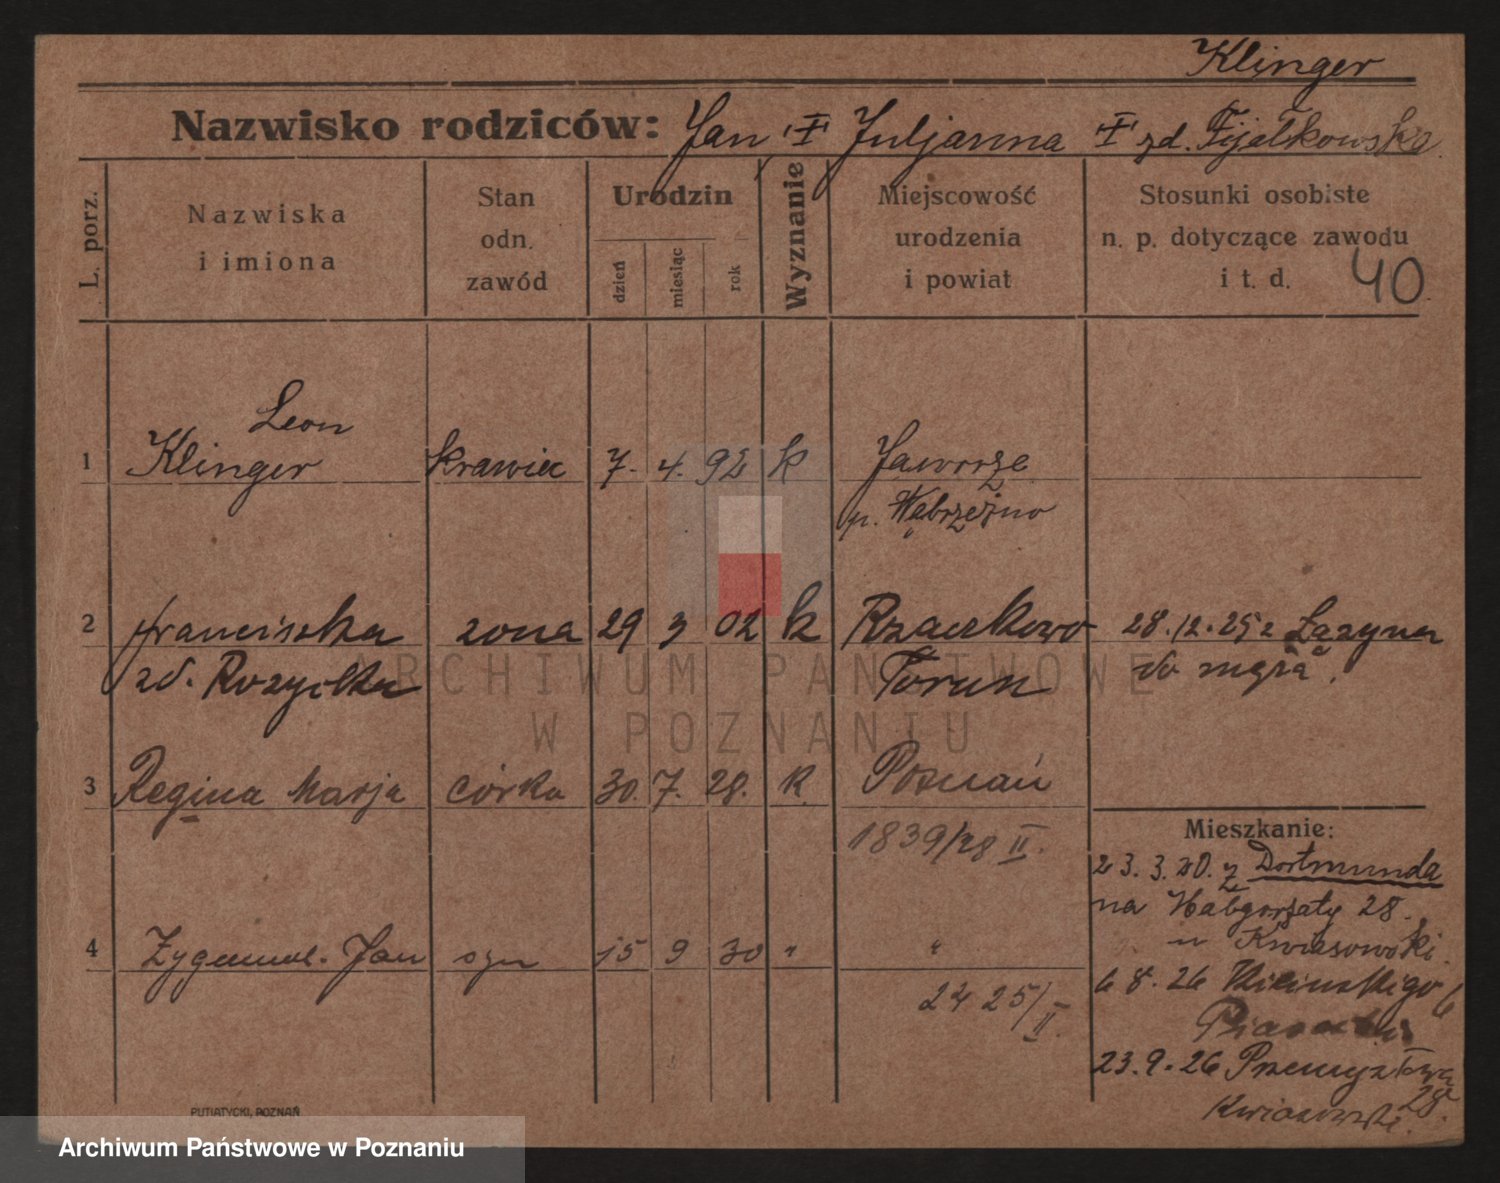 Klinger
Nazwisko rodziców: Jan Juljanna zd. Fijałkowska
L. porz.
Nazwiska i imiona
Stan odn. zawód
Urodzin
dzień
miesiąc
rok
Wyznanie
Miejscowość urodzenia i powiat
Stosunki osobiste n. p. dotyczące zawodu i t. d.
40
Leon
1 Klinger krawiec 7. 4. 92 k Jaworze
p. Wąbrzeźno
2 franciszka żona 29 3 02 k Rzaczkowo 28.12.25 z Łążyna
zd. Rozycka Toruń do męża.
3 Regina Marja córka 30. 7. 28. k. Poznań
1839/28 II.
Mieszkanie:
23. 3. 20. z Dortmunda
na Małgorzaty 28.
u
4 Zygmunt Jan syn 15 9 30 " "
6 8. 26 Kilińskiego 6
2425/II.
23. 9. 26 Przemysłowa
28.
PUTIATYCKI, POZNAŃ
ARCHIWUM PAŃSTWOWE
W POZNANIU
Archiwum Państwowe w Poznaniu